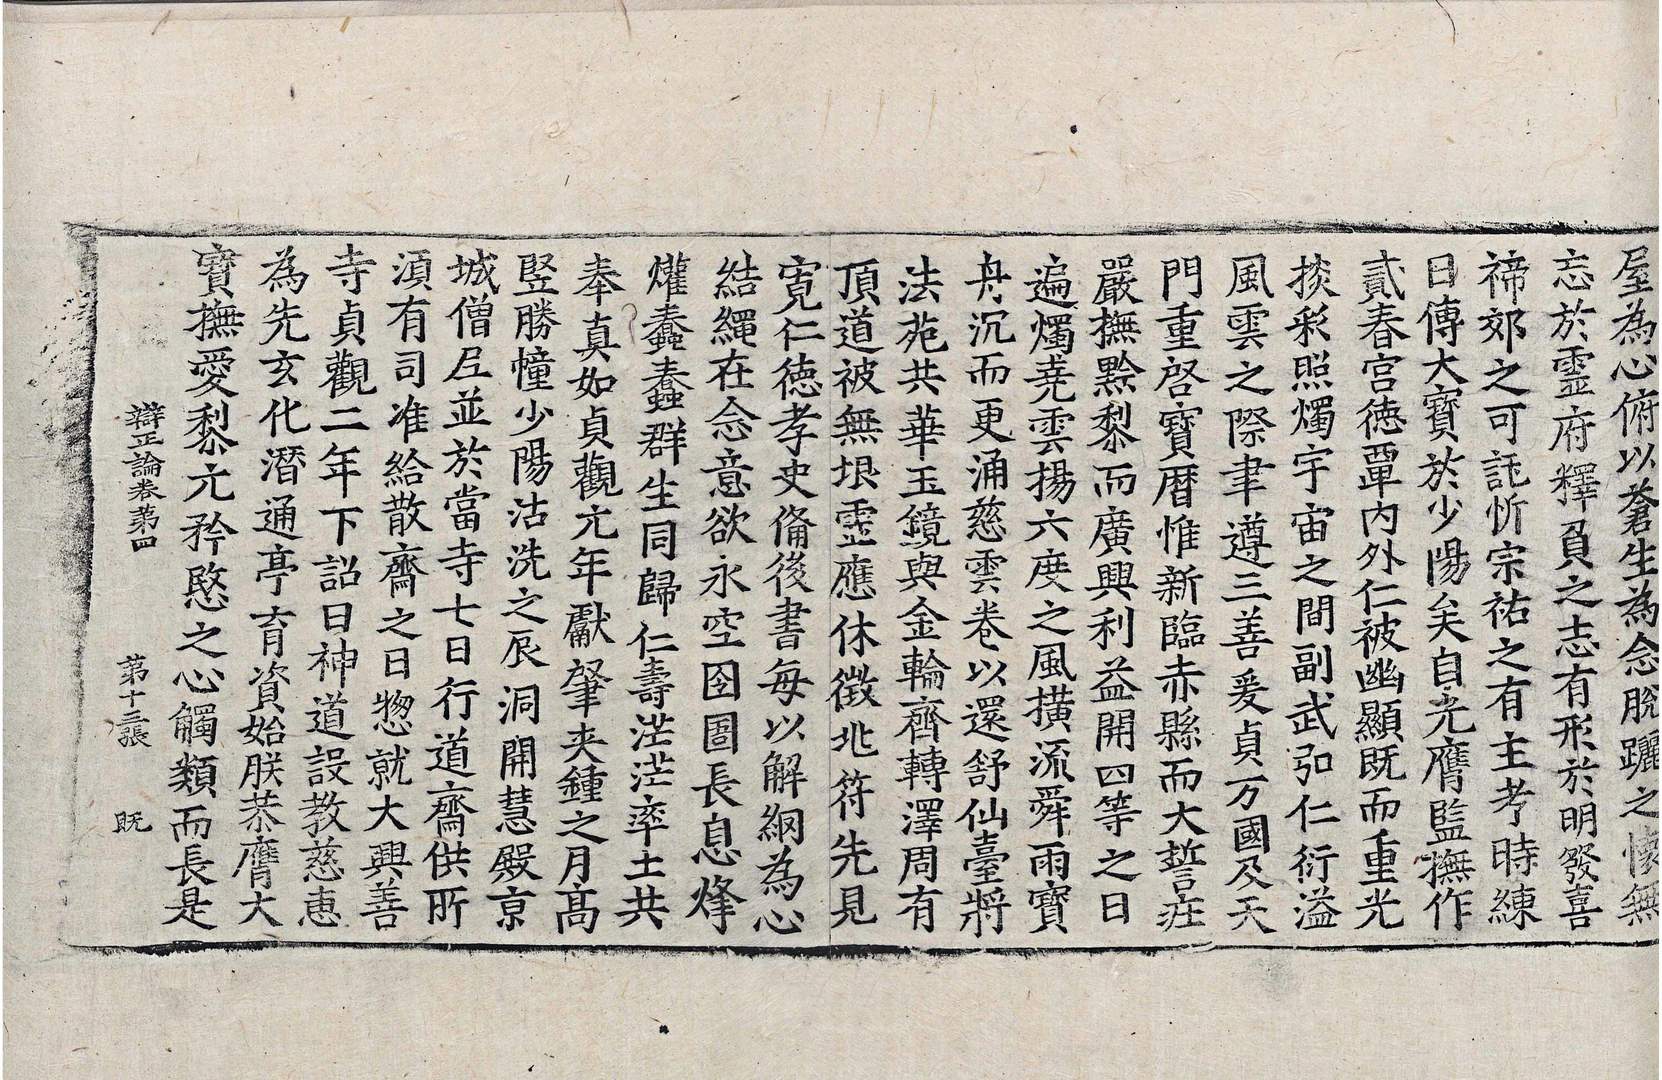 屋為心俯以蒼生為念脫躧之懷無
忘於靈府釋負之志有形於明發喜
禘郊之可託忻宗祐之有主考時練
日傳大寶於少陽矣自光膺監撫作
貳春宮德覃內外仁被幽顯既而重光
掞彩照燭宇宙之間副武弘仁衍溢
風雲之際聿遵三善爰貞万國及天
門重啓寶曆惟新臨赤縣而大誓莊
嚴撫黔黎而廣興利益開四等之日
遍燭堯雲揚六度之風撗流舜雨寶
舟沉而更涌慈雲卷以還舒仙臺將
法苑共華玉鏡與金輪齊轉澤周有
頂道被無垠靈應休徵兆符先見
寬仁德孝史俻後書每以解綱為心
結繩在念意欲永空囹圄長息烽
爟蠢蠢群生同歸仁壽茫茫率土共
奉真如貞觀元年獻肇夾鍾之月高
竪勝幢少陽沽洗之辰洞開慧殿京
城僧尼並於當寺七日行道齋供所
湏有司准給散齋之日惣就大興善
寺貞觀二年下詔曰神道設教慈惠
為先玄化潛通亭育資始朕恭膺大
寶撫愛黎元矜愍之心觸類而長是
辯正論卷第四 第十三張 既